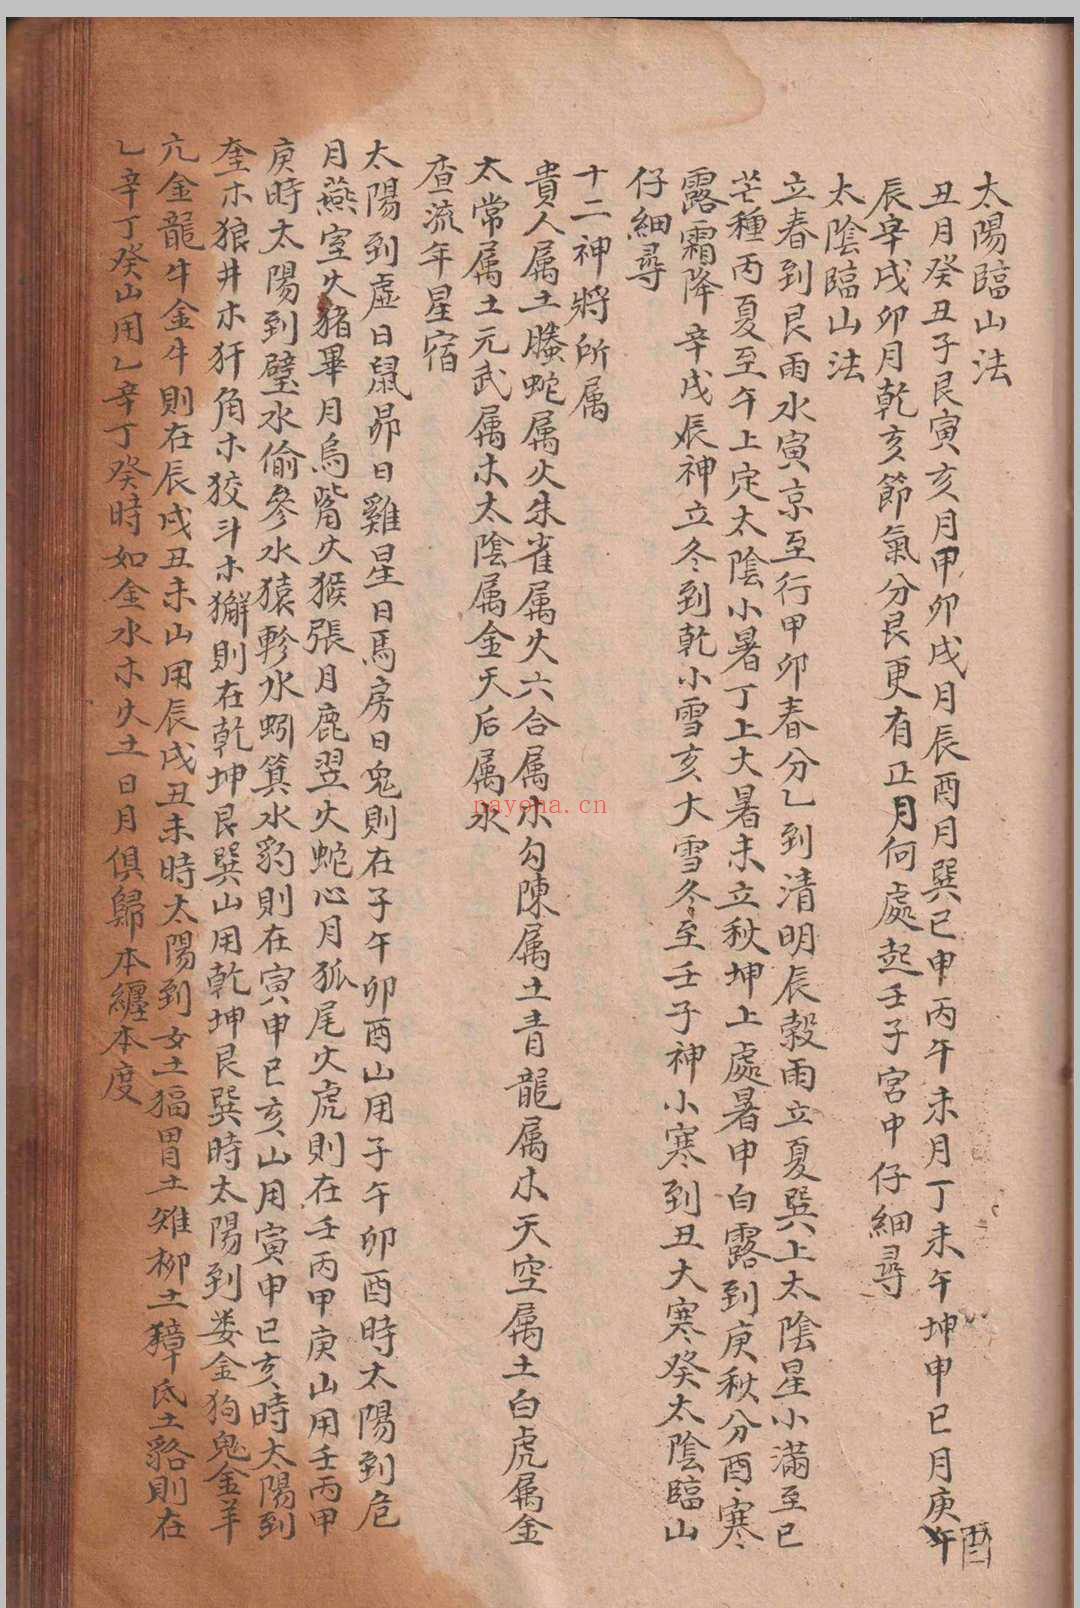 太陽臨山法
丑月癸丑子艮寅亥月甲卯戌月辰酉月巽巳申丙午未月丁未午坤申巳月庚午酉
辰辛戌卯月乾亥節氣分艮更有正月何處起壬子宮中仔細尋
太陰臨山法
立春到艮雨水寅京至行甲卯春分乙到清明辰榖雨立夏巽上太陰星小滿至巳
芒種丙夏至午上定太陰小暑丁上大暑未立秋坤上處暑申白露到庚秋分酉寒
露霜降辛戌辰神立冬到乾小雪亥大雪冬至壬子神小寒到丑大寒癸太陰臨山
仔細尋
十二神將所属
貴人属土螣蛇属火朱雀属火六合属木勾陳属土青龍属木天空属土白虎属金
太常属土元武属木太陰属金天后属水
查流年星宿
太陽到虛日鼠昴日雞星日馬房日兔則在子午卯酉山用子午卯酉時太陽到危
月燕室火豬畢月烏觜火猴張月鹿翌火蛇心月狐尾火虎則在壬丙甲庚山用壬丙甲
庚時太陽到壁水偷參水猿軫水蚓箕水豹則在寅申巳亥山用寅申巳亥時太陽到
奎木狼井木犴角木狡斗木獬則在乾坤艮巽山用乾坤艮巽時太陽到娄金狗鬼金羊
亢金龍牛金牛則在辰戌丑未山用辰戌丑未時太陽到女土猵胃土雉柳土獐氐土貉則在
乙辛丁癸山用乙辛丁癸時如金水木火土日月俱歸本纏本度
nayona.cn